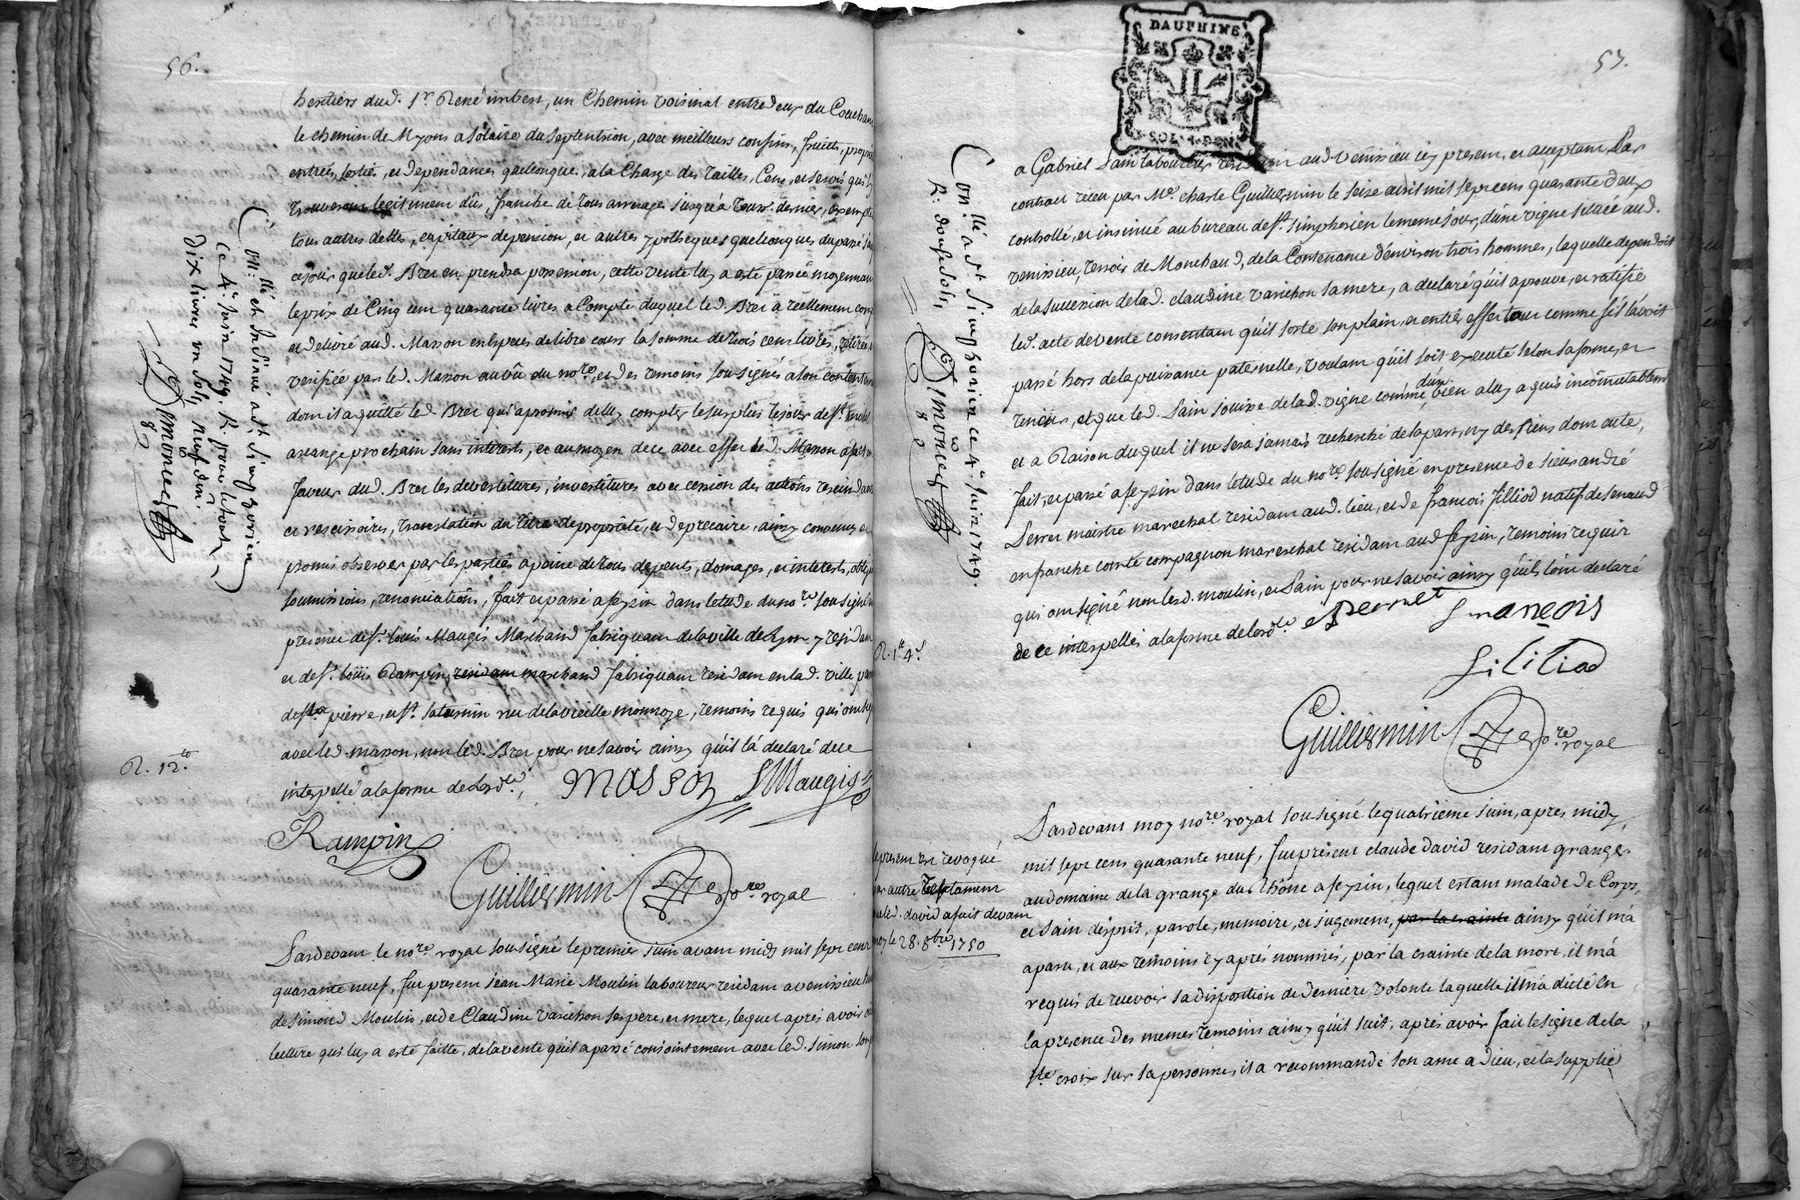 56.
heritiers dud. Sr. René imbert, un Chemin voisinal entredeux du Couchant
le chemin de Myons a Solaize du Septentrion, avec meilleurs confins, fruits, propri
entrées, sorties, et dependances quelconque, a la Charge des tailles, Cens, et servis qui s'y
trouveront legitimement dûs, franche de tous arrerages jusqu'à
tous autres dettes, capitaux de pension, et autres ypotheques quelconques du passé
ce jour que led. Bret en prendra possession, cette vente luy a este passée moyennan
le prix de Cinq cent quarante livres a Compte duquel led. Bret a réellement com
et delivré aud. Masson en Especes de libre cours la somme de trois cens livres, retirée
verifiée par led. Masson au vû du nore, et des temoins soussignés a son contentem
dont il a quitté led. Bret qui a promis de luy compter le surplus le jour de St.
avenge prochain sans interets, et au moyen de ce avec effet led. Masson a fait
faveur dud. Bret les devestitures, investitures avec cession des actions rescindan
et rescisoires, translation du titre de proprieté, et de precaire, ainsy convenu, et
promis observer par les parties a paine de tous depents, domages, et interets, oblig
soumissions, renonciations, fait et passé a feyzin dans l'etude du nore soussigné
presence de Sr. Louis Maugis Marchand fabriquant de la ville de Lyon y residan
et de Sr. Louis Rampin residant marchand fabriquant residant en lad. ville
de St. pierre, et St. Saturnin rue de la vieille monnoye, temoins requis qui ont
avec led. masson, non led. Bret pour ne savoir ainsy qu'il l'a declaré de ce
interpellé a la forme de l'ord.ce,
masson LMaugis
Rampin
Guillermin nore royal
Con.llé et Insinué a St. Simphorien
Ce 4e Juin 1749. R. pour le tout
dix livres un sols, neuf den.
Simonet
R. 12.to
Pardevant le nore royal soussigné le premier Juin avant midy mil sept cent
quarante neuf, fut present Jean Marie Moulin laboureur residant a venissieu
de Simond Moulin, et de Claudine Varichon ses pere, et mere, lequel après avoir
lecture qui luy a esté faitte, de la vente qu'il a passé conjointement avec led. Simon son
57.
DAUPHINE
SOL. 4. DEN.
a Gabriel Pain laboureur residant aud. venissieu icy present, et aceptant Par
contract receu par Me. charle Guillermin le seize avril mil sept cens quarante deux
controllé, et insinué au bureau de St. Simphorien le meme jour, d'une vigne située aud.
venissieu, terroir de Monchaud, de la Contenance d'environ trois hommes, laquelle dependoit
de la succession de lad. claudine varichon sa mere, a declaré qu'il aprouve, et ratiffie
led. acte de vente consentant qu'il sorte son plain, et entier effet tout comme s'il l'avoit
passé hors de la puissance paternelle, voulant qu'il soit executé selon sa forme, et
teneur, et que led. Pain jouisse de lad. vigne comme d'un bien a luy aquis incommutablement
et a Raison duquel il ne sera jamais recherché de la part, ny des siens dont acte,
fait, et passé a feyzin dans l'etude du nore soussigné en presence de sieur andré
Perret maitre marechal residant aud. lieu, et de francois filliod natif de Senaud
en franche comté compagnon mareschal residant aud feyzin, temoins requis
qui ont signé non led. moulin, et Pain pour ne savoir ainsy qu'ils l'ont declaré
de ce interpellés a la forme de l'ord.ce
francois
fililiod
Guillermin nore royal
Con.llé a St. Simphorien ce 4e. Juin 1749.
R. douse sols,
Simonet
R. 1te 4s
Pardevant moy nore royal soussigné le quatrieme Juin, apres midy,
mil sept cens quarante neuf, fut présent claude david residant granger
au domaine de la grange du Rhône a feyzin, lequel estant malade de Corps,
et sain d'esprit, parole, memoire, et jugement, par la crainte ainsy qu'il m'a
aparu, et aux temoins cy après nommés, par la crainte de la mort, il m'a
requis de recevoir sa disposition de derniere volonte laquelle il m'a dicté En
la presence des memes temoins ainsy qu'il suit, après avoir fait le signe de la
Ste. croix sur sa personne, il a recommandé son ame a Dieu, et l'a supplié
le present est revoqué
par autre Testament
que led. david a fait devant
moy le 28. 8bre 1750